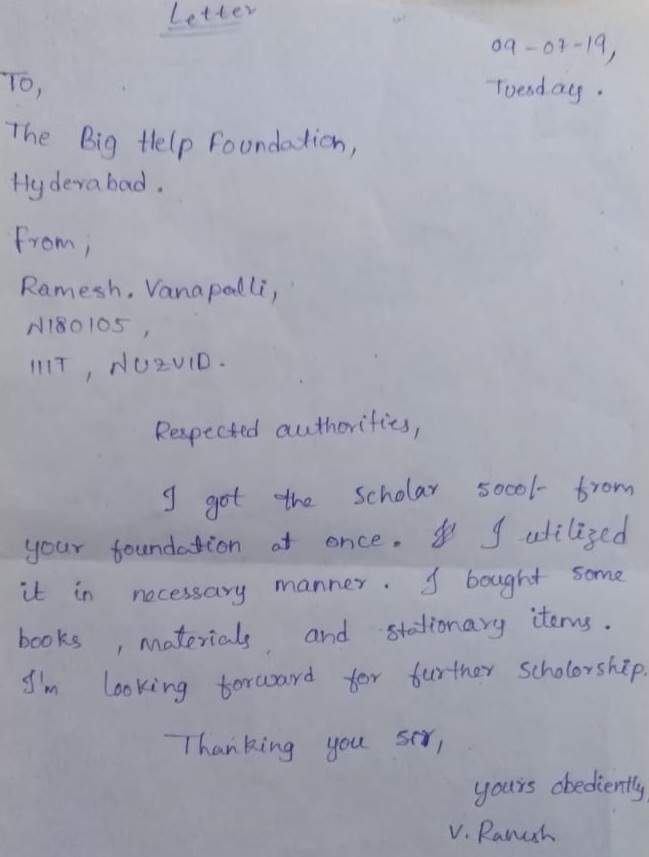 Letter
09-07-19,
Tuesday.
To,
The Big Help Foundation,
Hyderabad.
From,
Ramesh. Vanapalli,
N180105,
IIIT, NUZVID.
Respected authorities,
I got the Scholar 5000/- from
your foundation at once. I utilized
it in necessary manner. I bought some
books, materials and stationary items.
I'm looking forward for further Scholorship.
Thanking you sir,
yours obediently,
V. Ramesh